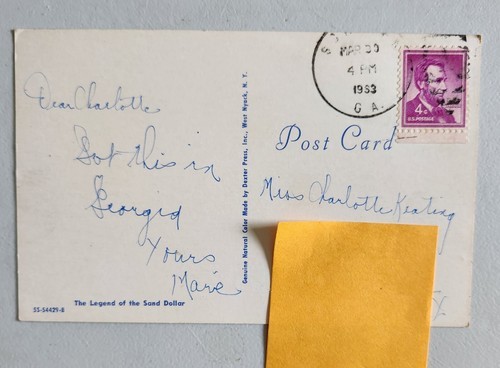 Dear Charlotte
Got this in
Georgia
Yours
Marie
The Legend of the Sand Dollar
SS-54429-B
Genuine Natural Color Made by Dexter Press, Inc., West Nyack, N. Y.
MAR 30
4 PM
1963
GA.
4¢
U.S. POSTAGE
Post Card
Miss Charlotte Keating